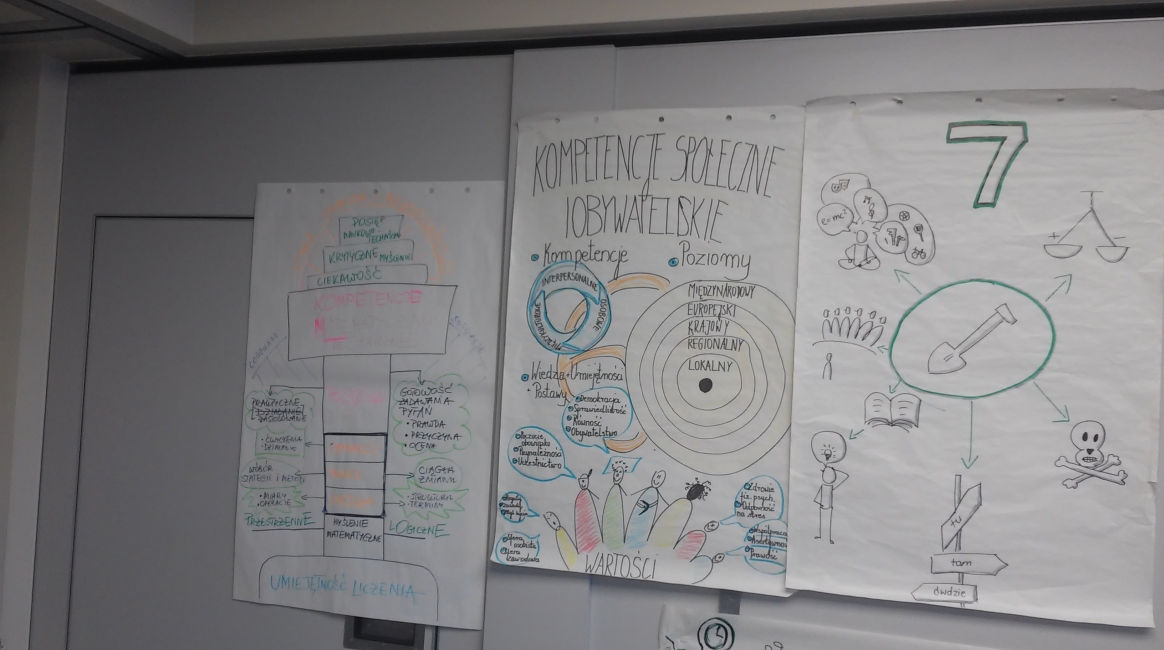 POSTĘP
NAUKOWO
TECHNICZNY
KRYTYCZNE MYŚLENIE
CIEKAWOŚĆ
KOMPETENCJE
PRAKTYCZNE
ZASTOSOWANIE
• ĆWICZENIA
• DZIAŁANIE
WYBÓR
STRATEGII I METODY
• MIARY
• OPERACJE
PRZESTRZENNE
GOTOWOŚĆ
ZADAWANIA
PYTAŃ
• PRAWDA
• PRZYCZYNA
• OCENA
CIĄGŁA
ZMIANA
LOGICZNE
MYŚLENIE
MATEMATYCZNE
UMIEJĘTNOŚĆ LICZENIA
KOMPETENCJE SPOŁECZNE
I OBYWATELSKIE
Kompetencje
Poziomy
INTERPERSONALNE
OSOBOWE
MIĘDZYKULTUROWE
MIĘDZYNARODOWY
EUROPEJSKI
KRAJOWY
REGIONALNY
LOKALNY
Wiedza + Umiejętności
+ Postawy
Demokracja
Sprawiedliwość
Równość
Obywatelstwo
Poczucie
obowiązku
Przynależności
Uczestnictwo
Zdrowie
fiz. psych.
Odporność
na stres
Współpraca
Asertywność
WARTOŚCI
7
e=mc²
+
-
tu
tam
ówdzie